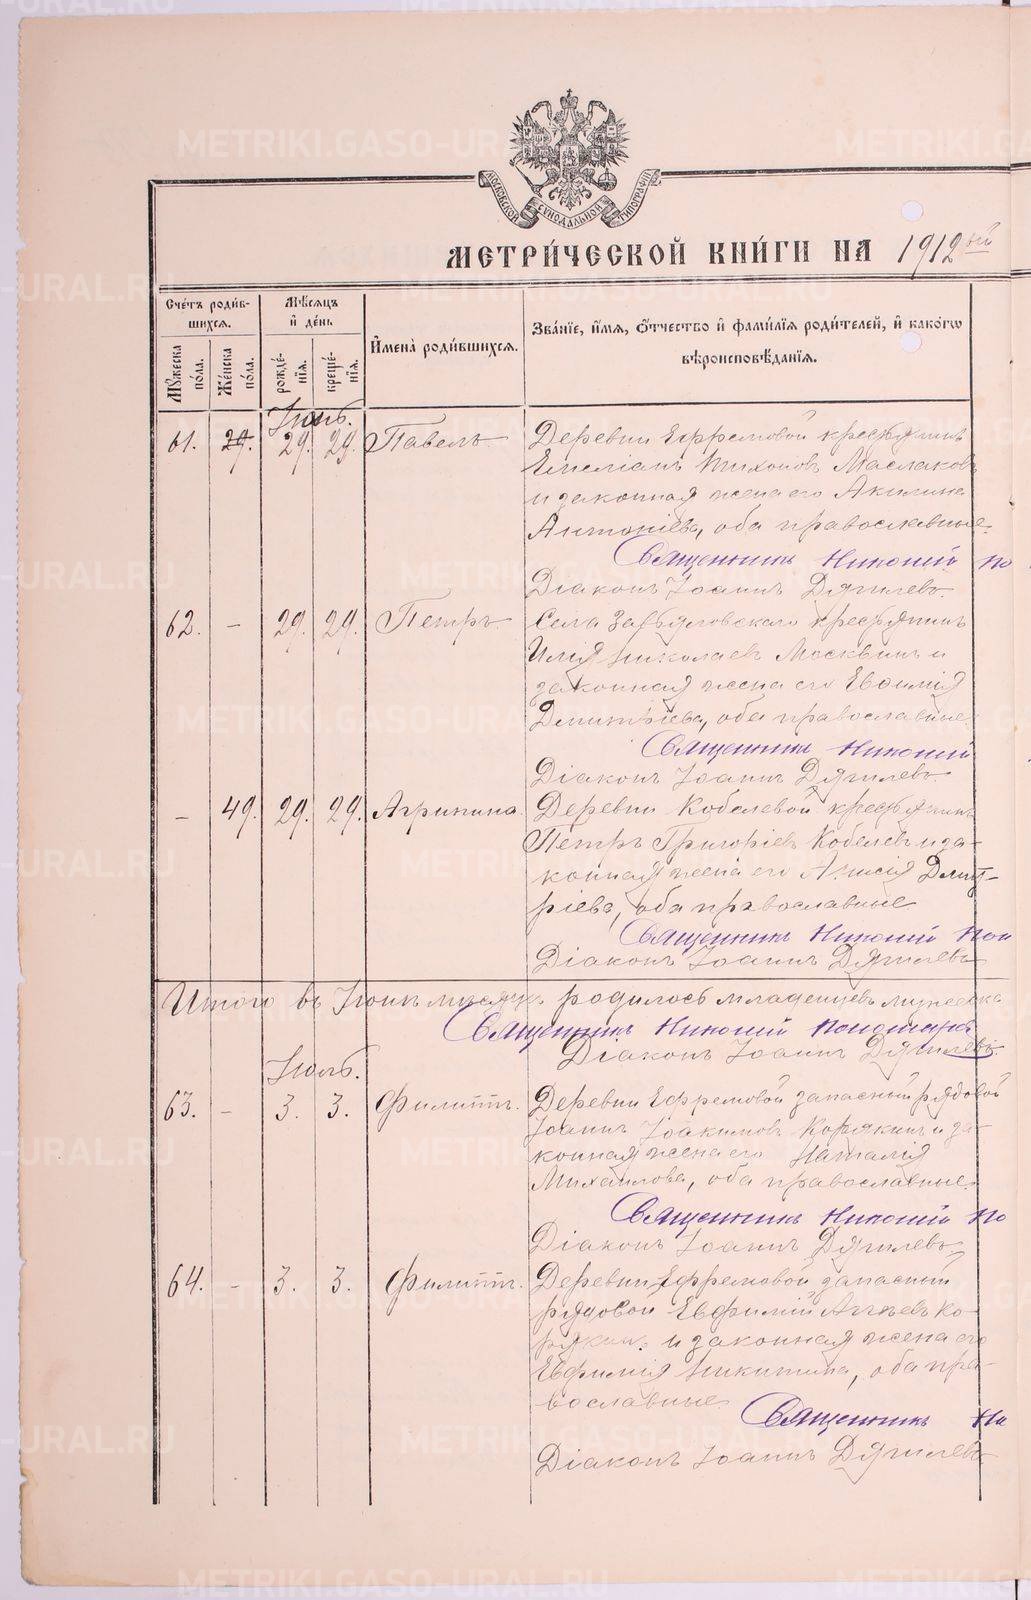 МОСКОВСКОЙ СѴНОДАЛЬНОЙ ТИПОГРАФІИ
МЕТРИ́ЧЕСКОЙ КНИ́ГИ НА 1912ый
Счётъ роди́в-
шихся.
Мѣсяцъ
и де́нь
Мꙋжеска
по́ла.
Же́нска
по́ла.
рожде́-
нїя.
креще́-
нїя.
Имена̀ роди́вшихся.
Зва́нїе, и́мя, ѻ҆́тчество и фами́лїя роди́телей, и како́гѡ
вѣроисповѣ́данїя.
Іюнь.
61. 29. 29. 29. Павелъ Деревни Ефремовой крестьянинъ
Емеліанъ Тихоновъ Маслаковъ
и законная жена его Акилина
Антоніева, оба православные.
Священникъ Никоній По
Діаконъ Іоаннъ Дягилевъ.
62. – 29. 29. Петръ. Села Завьяловскаго крестьянинъ
Илія Николаевъ Москвинъ и
законная жена его Евѳимія
Димитріева, оба православные
Священникъ Никоній
Діаконъ Іоаннъ Дягилевъ.
– 49. 29. 29. Агрипина. Деревни Кобелевой крестьянинъ
Петръ Григоріевъ Кобелевъ и за-
конная жена его Анисія Дмит-
ріева, оба православные
Священникъ Никоній Пон
Діаконъ Іоаннъ Дягилевъ
Итого въ Іюнѣ мѣсяцѣ родилось младенцевъ мужеска
Священникъ Никоній Пономарев
Діаконъ Іоаннъ Дягилевъ.
Іюль.
63. – 3. 3. Филиппъ. Деревни Ефремовой запасный рядовой
Іоаннъ Іоакимовъ Корякинъ и за-
конная жена его Наталія
Михаилова, оба православные.
Священникъ Никоній По
Діаконъ Іоаннъ Дягилевъ
64. – 3. 3. Филиппъ. Деревни Ефремовой запасный
рядовой Евфимій Ко-
рякинъ и законная жена его
Евфимія Никитина, оба пра-
вославные
Священникъ Ни
Діаконъ Іоаннъ Дягилевъ
METRIKI.GASO-URAL.RU